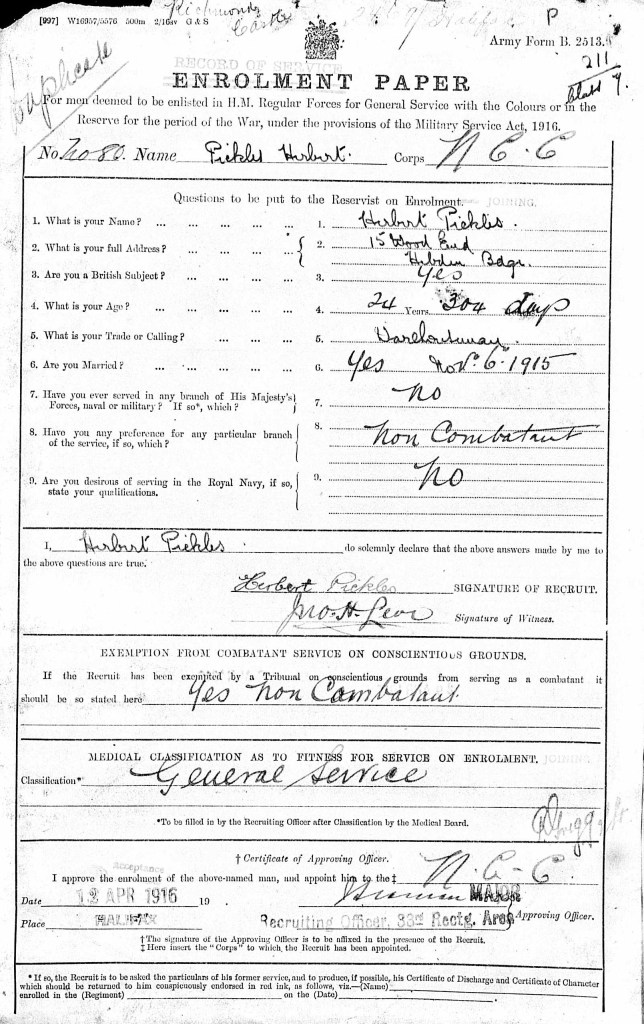 [997] W16957/5576 500m 2/16sv G & S
Richmond
Castle
P
Army Form B. 2513.
211
Class 7.
Duplicate
RECORD OF SERVICE
ENROLMENT PAPER
For men deemed to be enlisted in H.M. Regular Forces for General Service with the Colours or in the
Reserve for the period of the War, under the provisions of the Military Service Act, 1916.
No. Name Pickles Herbert. Corps N C C
Questions to be put to the Reservist on Enrolment. JOINING.
1. What is your Name? ... ... ... ... 1. Herbert Pickles.
2. What is your full Address? ... ... ... 2. 15 Wood End
Hebden Bdge.
3. Are you a British Subject? ... ... ... 3. Yes
4. What is your Age? ... ... ... ... 4. 24 Years 304 days
5. What is your Trade or Calling? ... ... ... 5. Warehouseman
6. Are you Married? ... ... ... ... 6. Yes Nov. 6th 1915
7. Have you ever served in any branch of His Majesty's
Forces, naval or military? If so*, which? 7. No
8. Have you any preference for any particular branch
of the service, if so, which? 8. Non Combatant
9. Are you desirous of serving in the Royal Navy, if so,
state your qualifications. 9. No
I, Herbert Pickles. do solemnly declare that the above answers made by me to
the above questions are true.
Herbert Pickles SIGNATURE OF RECRUIT.
Jno. H. Signature of Witness.
EXEMPTION FROM COMBATANT SERVICE ON CONSCIENTIOUS GROUNDS.
If the Recruit has been exempted by a Tribunal on conscientious grounds from serving as a combatant it
should be so stated here Yes Non Combatant.
MEDICAL CLASSIFICATION AS TO FITNESS FOR SERVICE ON ENROLMENT. JOINING.
Classification* General Service
*To be filled in by the Recruiting Officer after Classification by the Medical Board.
Acceptance
† Certificate of Approving Officer.
I approve the enrolment of the above-named man, and appoint him to the ‡ N. C. C
Date 12 APR 1916 19 . MAJOR
Place HALIFAX Recruiting Officer, 33rd Rectg. Area Approving Officer.
† The signature of the Approving Officer is to be affixed in the presence of the Recruit.
‡ Here insert the "Corps" to which the Recruit has been appointed.
* If so, the Recruit is to be asked the particulars of his former service, and to produce, if possible, his Certificate of Discharge and Certificate of Character
which should be returned to him conspicuously endorsed in red ink, as follows, viz.—(Name)
enrolled in the (Regiment) on the (Date)